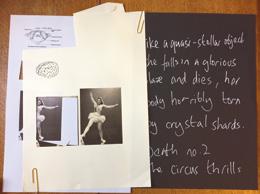 like a quasi-stellar object
she falls in a glorious
blaze and dies, her
body horribly torn
by crystal shards.
Death no. 2
The circus thrills